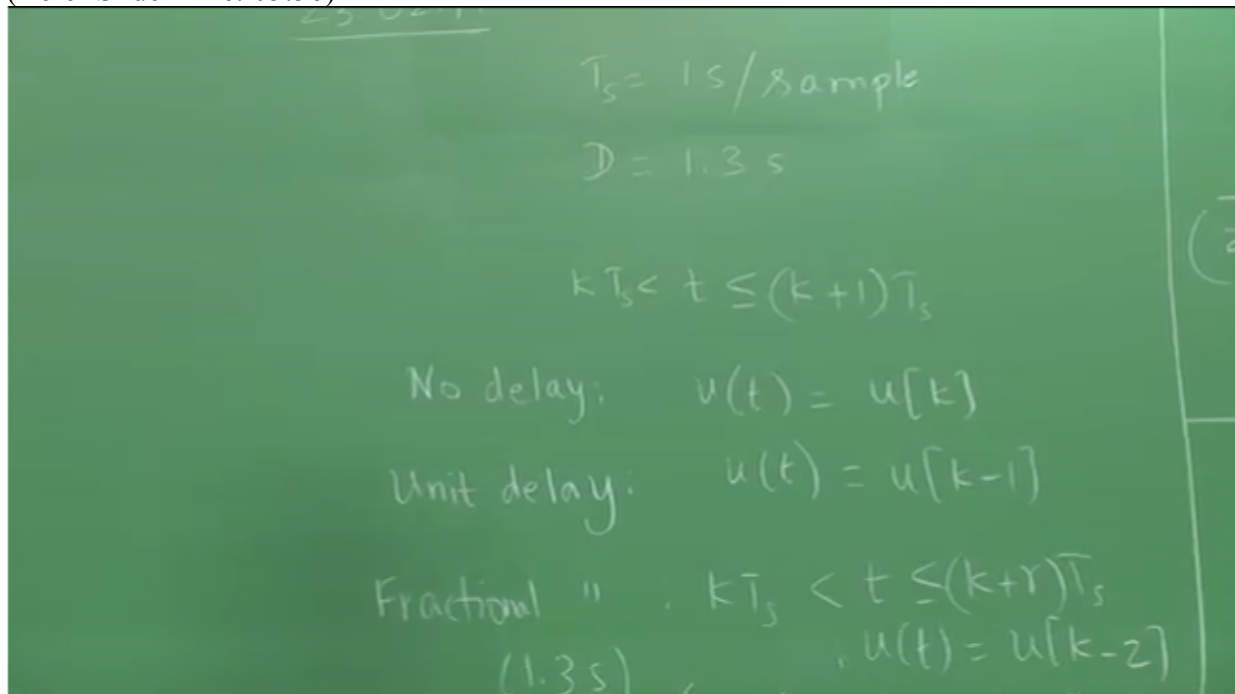 T_s = 1 s / sample
D = 1.3 s
kT_s < t ≤ (k+1)T_s
No delay: u(t) = u[k]
Unit delay: u(t) = u[k-1]
Fractional " : kT_s < t ≤ (k+r)T_s
: u(t) = u[k-2]
(1.3 s)